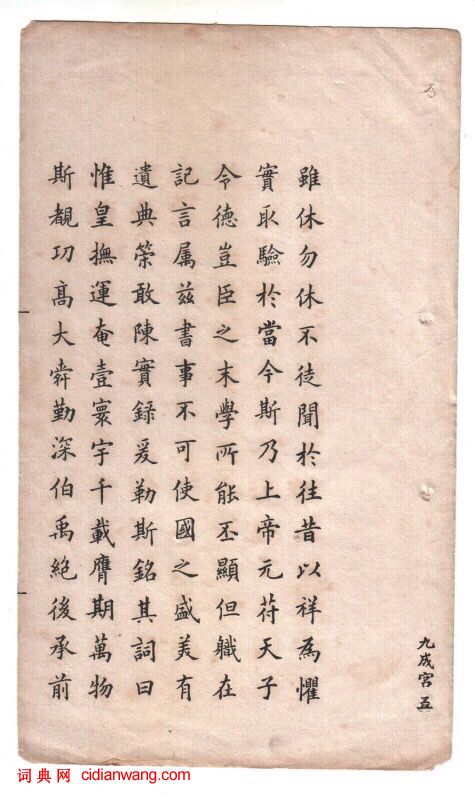 雖休勿休不徒聞於往昔以祥為懼
實取驗於當今斯乃上帝元苻天子
令德豈臣之末學所能丕顯但職在
記言属茲書事不可使國之盛美有
遺典策敢陳實録爰勒斯銘其詞曰
惟皇撫運奄壹寰宇千載膺期萬物
斯覩功髙大舜勤深伯禹絕後承前
九成宮 五
词典网 cidianwang.com